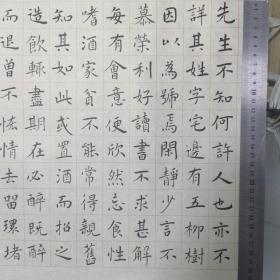 先生不知何許人也亦不
詳其姓字宅邊有五柳樹
因以為號焉閑靜少言不
慕榮利好讀書不求甚解
每有會意便欣然忘食性
嗜酒家貧不能常得親舊
知其如此或置酒而招之
造飲輒盡期在必醉既醉
而退曾不恡情去留環堵